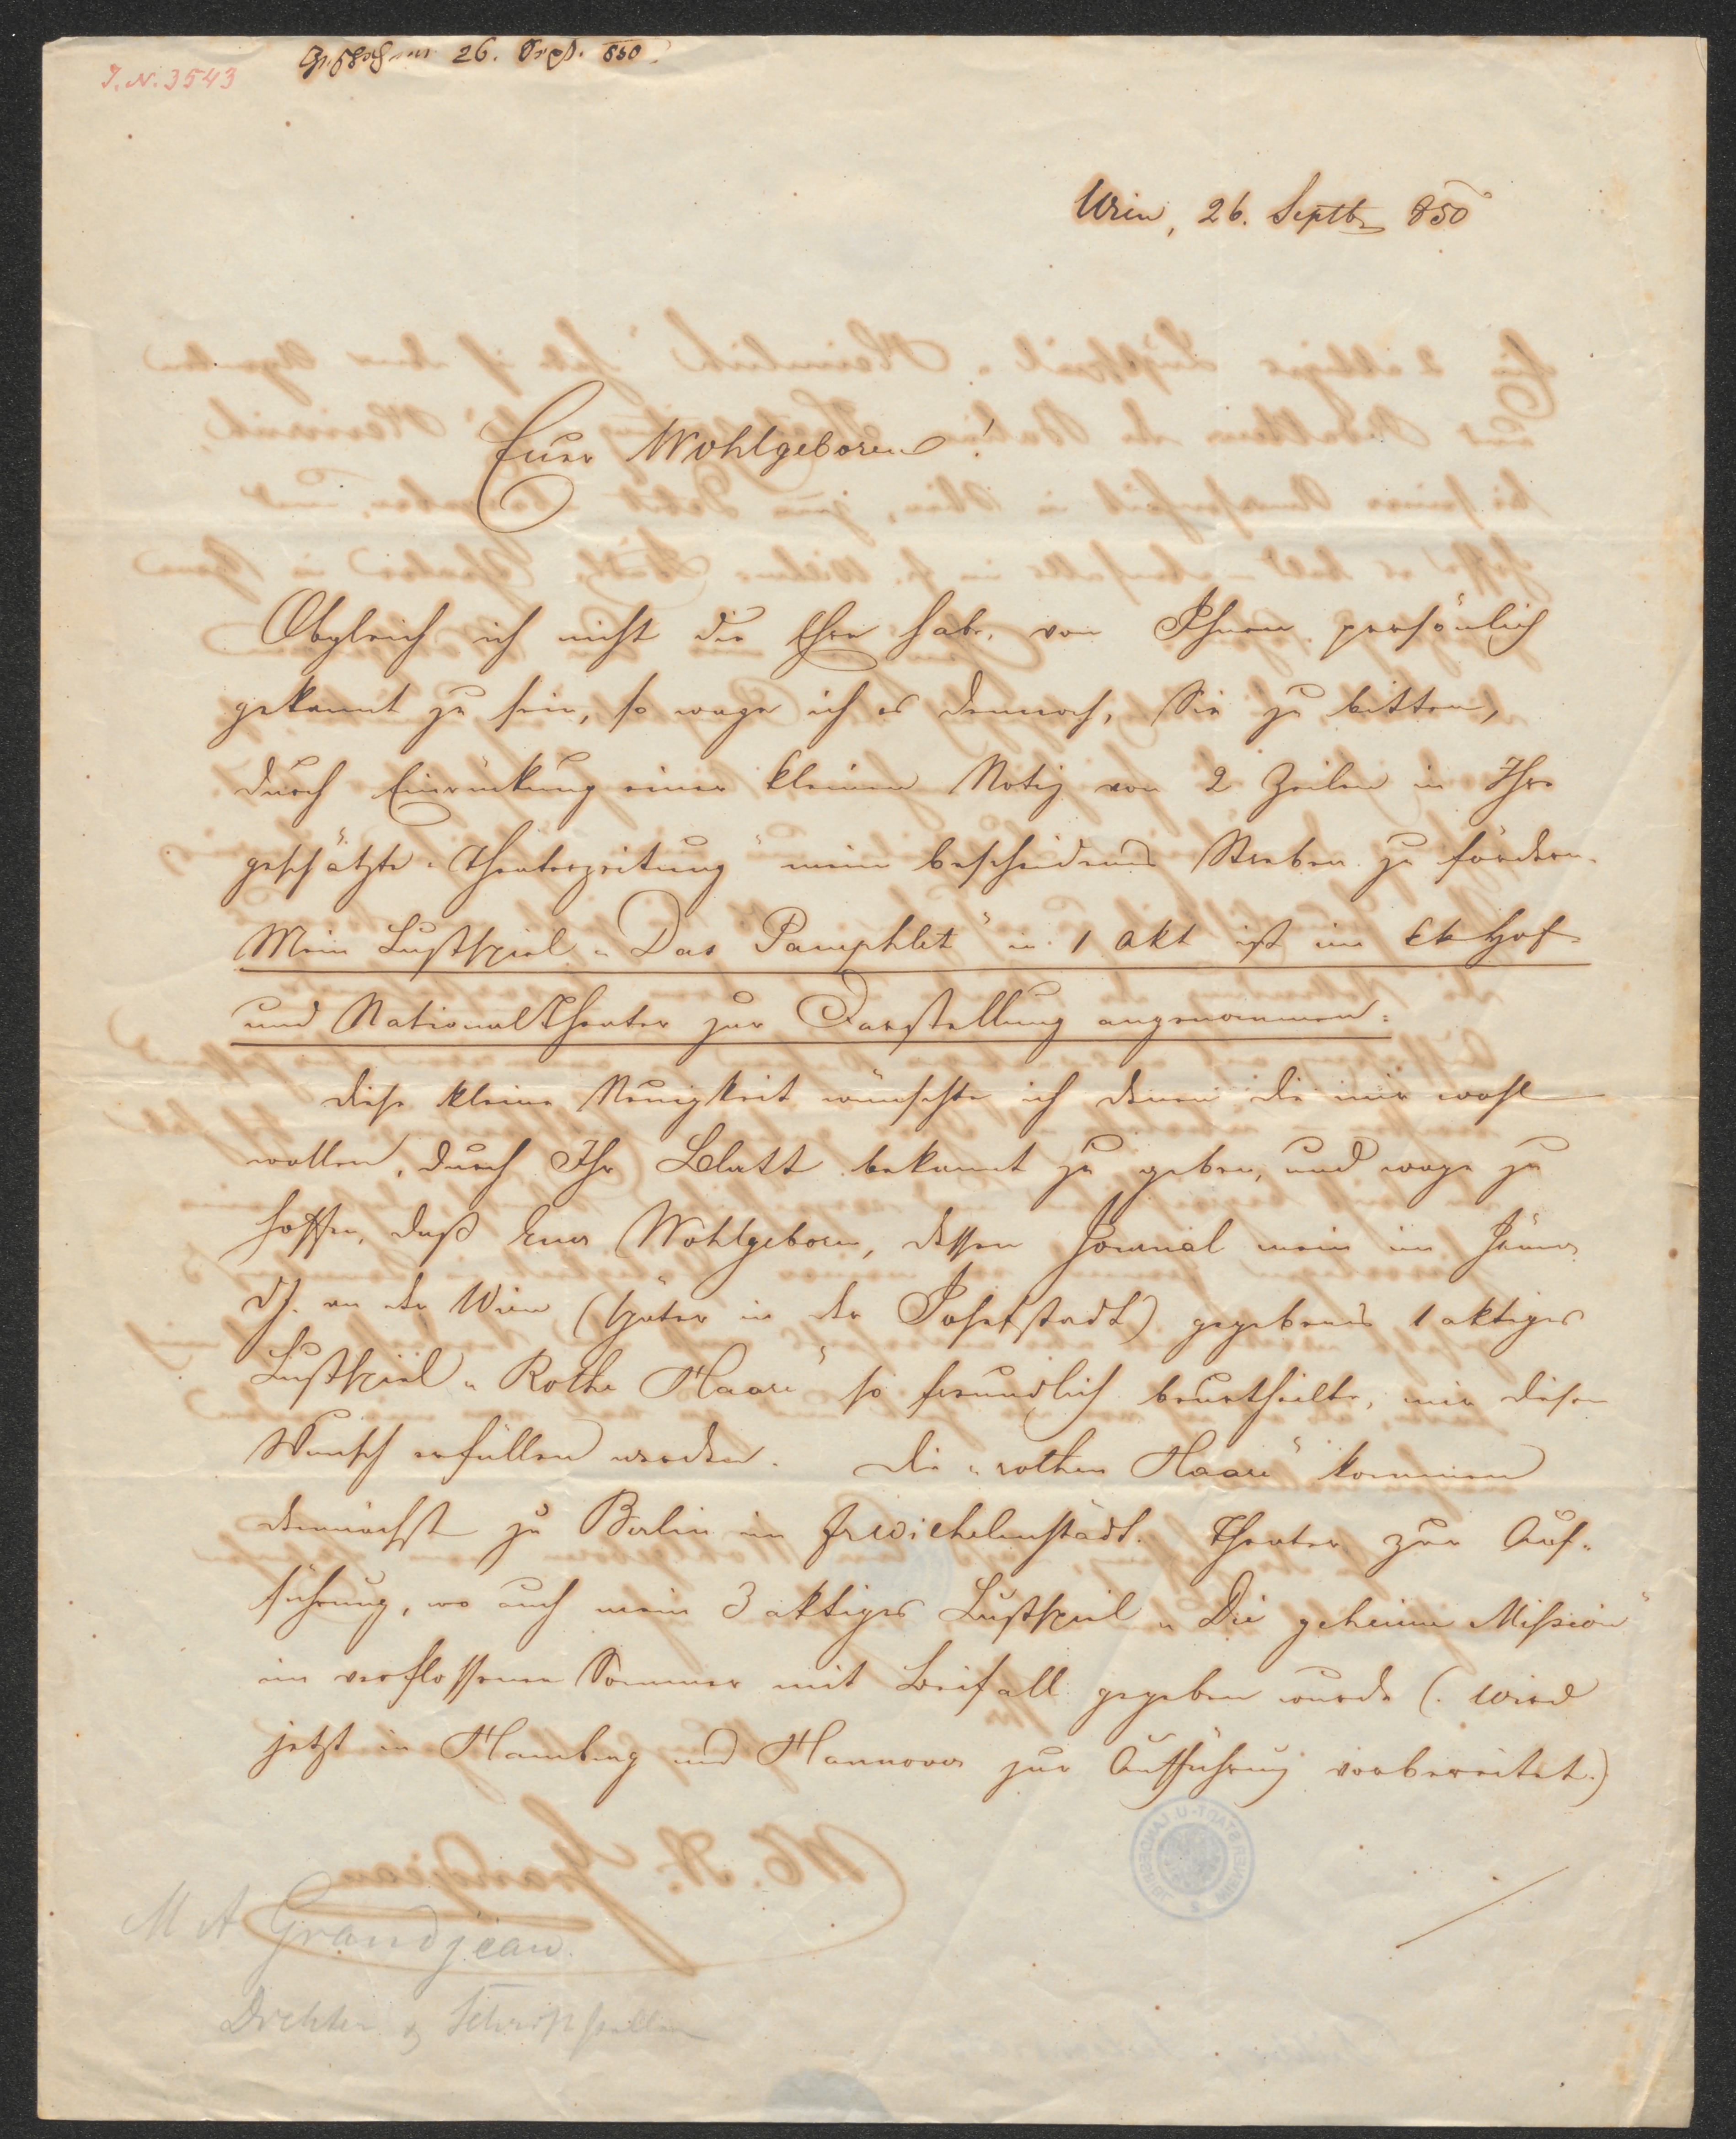 I. N. 3543
26. Sept. 850.
Wien, 26. Septb 850
Euer Wohlgeboren!
Obgleich ich nicht die Ehre habe, von Ihnen persönlich
gekannt zu sein, so wage ich es dennoch, Sie zu bitten,
durch Einrückung einer kleinen Notiz von 2 Zeilen in Ihre
geschätzte „Theaterzeitung" mein bescheidenes Streben zu fördern.
Mein Lustspiel „Das Pamphlet" in 1 Akt ist im kk Hof-
und Nationaltheater zur Darstellung angenommen.
Diese kleine Neuigkeit wünschte ich denen die mir wohl
wollen, durch Ihr Blatt bekannt zu geben, und wage zu
hoffen, daß Euer Wohlgeboren, dessen Journal mein im Jänner
dJ. an der Wien (später in der Josefstadt) gegebenes 1 aktiges
Lustspiel „Rothe Haare" so freundlich beurtheilte, mir diesen
Wunsch erfüllen werden. Die „rothen Haare" kommen
demnächst zu Berlin im Fr Wilhelmstädt. Theater zur Auf-
führung, wo auch mein 3 aktiges Lustspiel „Die geheime Mission"
im verflossenen Sommer mit Beifall gegeben wurde (. wird
jetzt in Hamburg und Hannover zur Aufführung vorbereitet.)
M A Grandjean.
Dichter & Schriftsteller